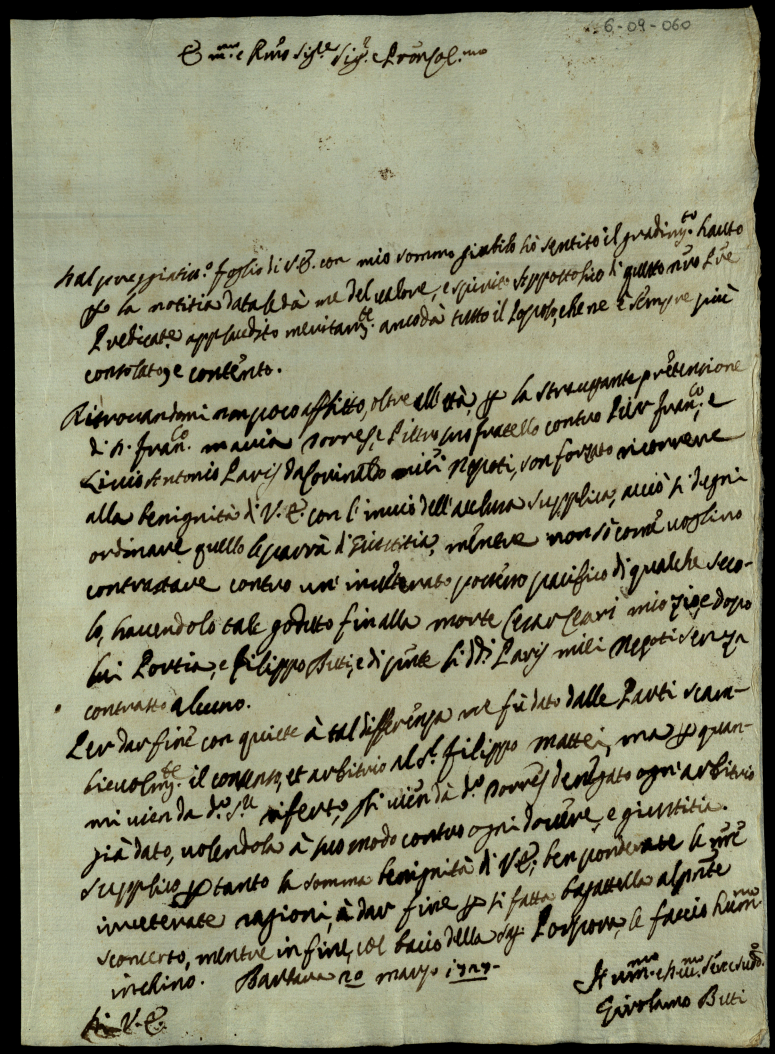 6-09-060
E.mo e R.mo Sig.re Sig.re e Pron Col.mo
Dal preggiatis.o foglio di V.E. con mio sommo giubilo hò sentito il gradim.to hauto
per la notitia datale dà me del valore, e spirito Appostolico di questo nro Pre
Predicat.e applaudito meritam.te ancò dà tutto il Popolo, che ne è sempre più
consolato, e contento.
Ritrouandomi non poco afflitto, oltre all'età, per la strauagante pretensione
di D. Fran.co Maria Torres, e Pietro suo fratello contro Pier Fran.co, e
Liuio Antonio Parisj da Corinaldo miei Nepoti, son forzato ricorrere
alla benignità di V.E. con l'inuio dell'acclusa supplica, acciò si degni
ordinare quello le parrà di Giustitia, mentre non sò come uoglino
contrastare contro un' inueterato possesso pacifico di qualche seco-
lo, hauendolo tale goduto fin alla morte Cesar Ceari mio zio, e dopo
lui Portia, e Filippo Bitti, e di pnte li dd.i Parisj miei Nepoti senza
contrasto alcuno.
Per dar fine con quiete à tal differenza ne fù dato dalle Parti scam-
bieuolm.te il consenso, et arbitrio al S.r Filippo Mattei, ma per quan-
mi uien da d.o S.re riferto, gli uien da d.o Torres denegato ogn'arbitrio
già dato, uolendola à suo modo contro ogni douere, e giustitia.
Supplico per tanto la somma benignità di V.E., ben ponderate le mie
inueterate ragioni, à dar fine per sì fatta bagattella al pnte
sconcerto, mentre in fine, col bacio della Sag. Porpora, le faccio hum.mo
inchino. Barbara 20 Marzo 1727.
Di V.E.
H um.mo e Seruidô.
Girolamo Bitti